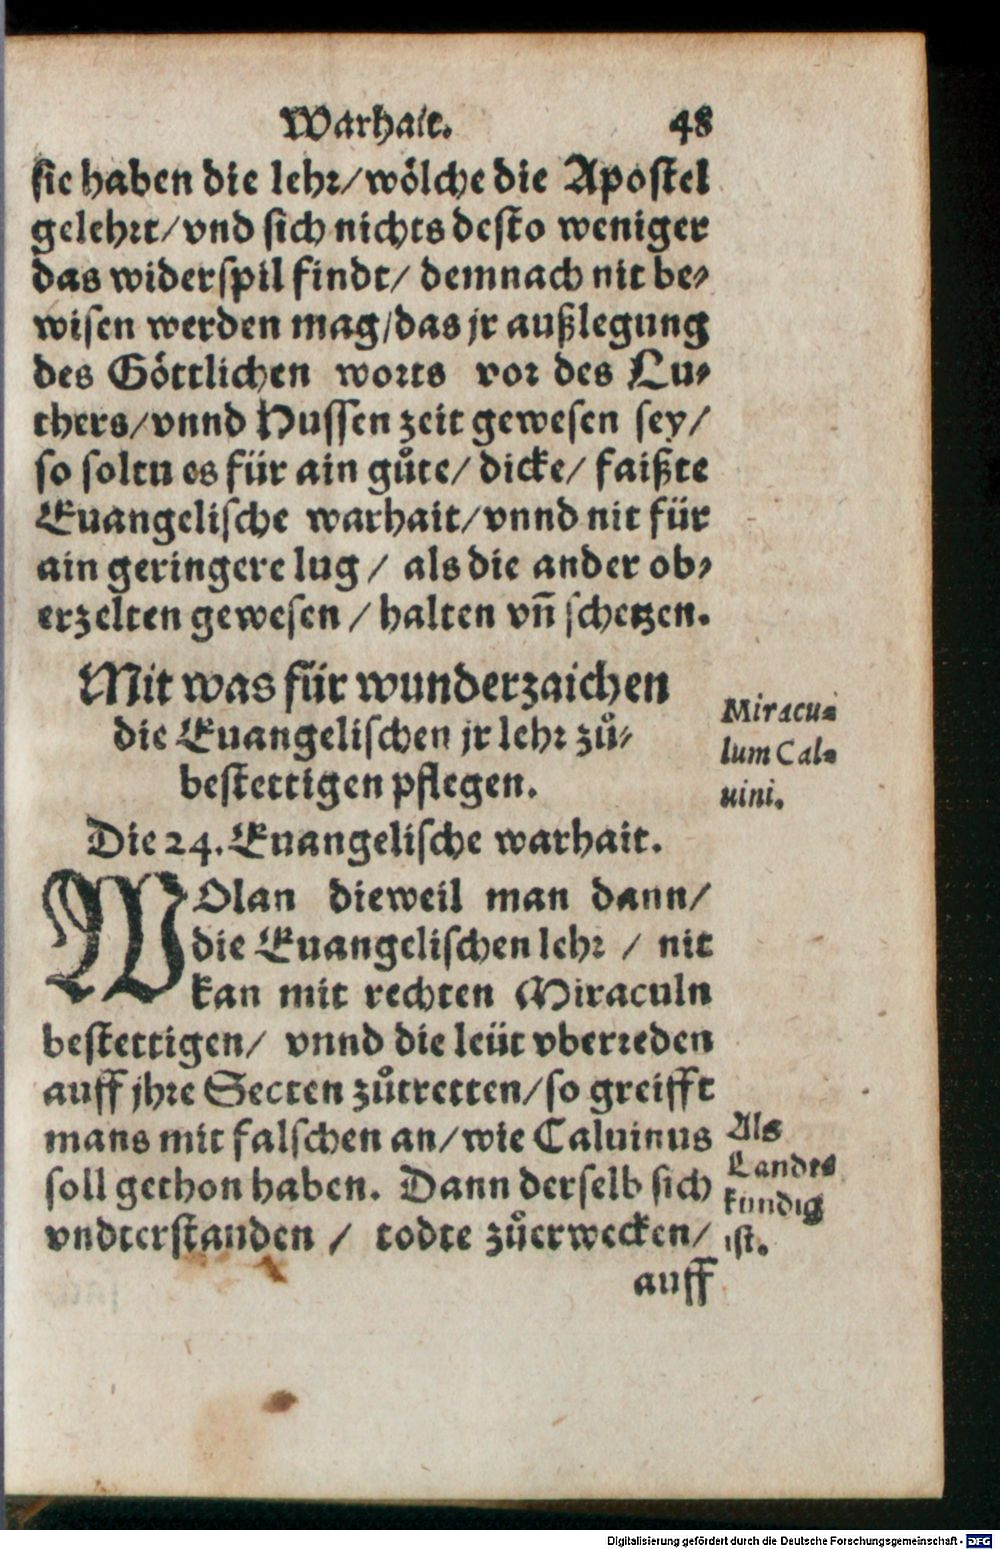 Warhait. 48
sie haben die lehr/wölche die Apostel
gelehrt/vnd sich nichts desto weniger
das widerspil findt/ demnach nit be⸗
wisen werden mag/das jr außlegung
des Göttlichen worts vor des Lu⸗
thers/vnnd Hussen zeit gewesen sey/
so soltu es für ain gůte/ dicke/ faißte
Euangelische warhait/vnnd nit für
ain geringere lug / als die ander ob⸗
erzelten gewesen / halten vñ schetzen.
Mit was für wunderzaichen
die Euangelischen jr lehr zů⸗
bestettigen pflegen.
Miracu⸗
lum Cal⸗
uini.
Die 24. Euangelische warhait.
WOlan dieweil man dann/
die Euangelischen lehr / nit
kan mit rechten Miraculn
bestettigen/ vnnd die leüt vberreden
auff jhre Secten zůtretten/so greifft
mans mit falschen an/wie Caluinus
soll gethon haben. Dann derselb sich
vndterstanden / todte zůerwecken/
Als
Landts
kündig
ist.
auff
Digitalisierung gefördert durch die Deutsche Forschungsgemeinschaft - DFG